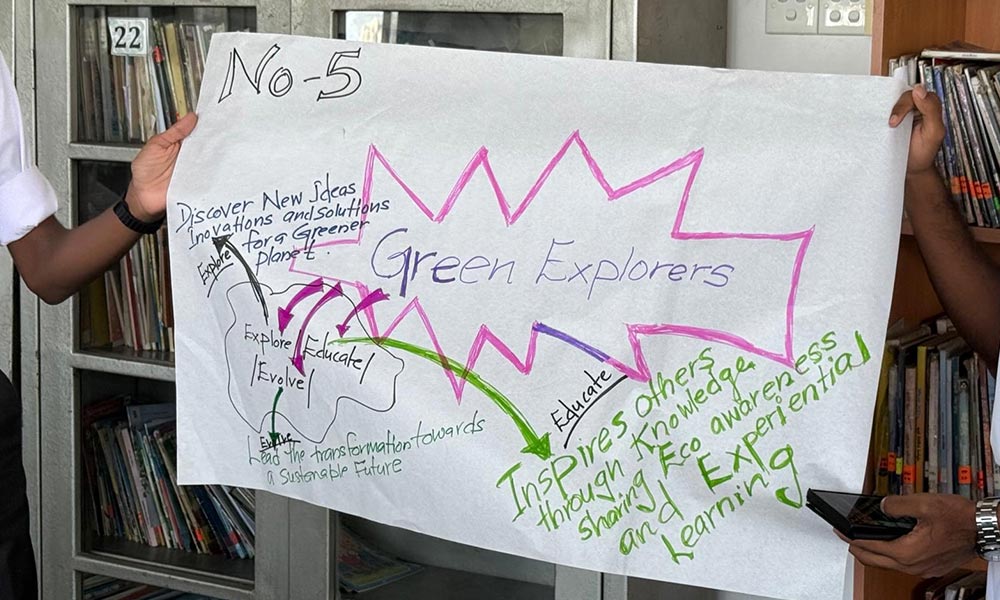 22
No-5
Discover New Ideas
Inovations and solutions
for a Greener
planet.
Explore
Green Explorers
Explore/
Educate/
/Evolve/
Evolve
Lead the transformation towards
a Sustainable Future
Educate
Inspires others
through Knowledge
sharing, Eco awareness
and Experiential
Learning